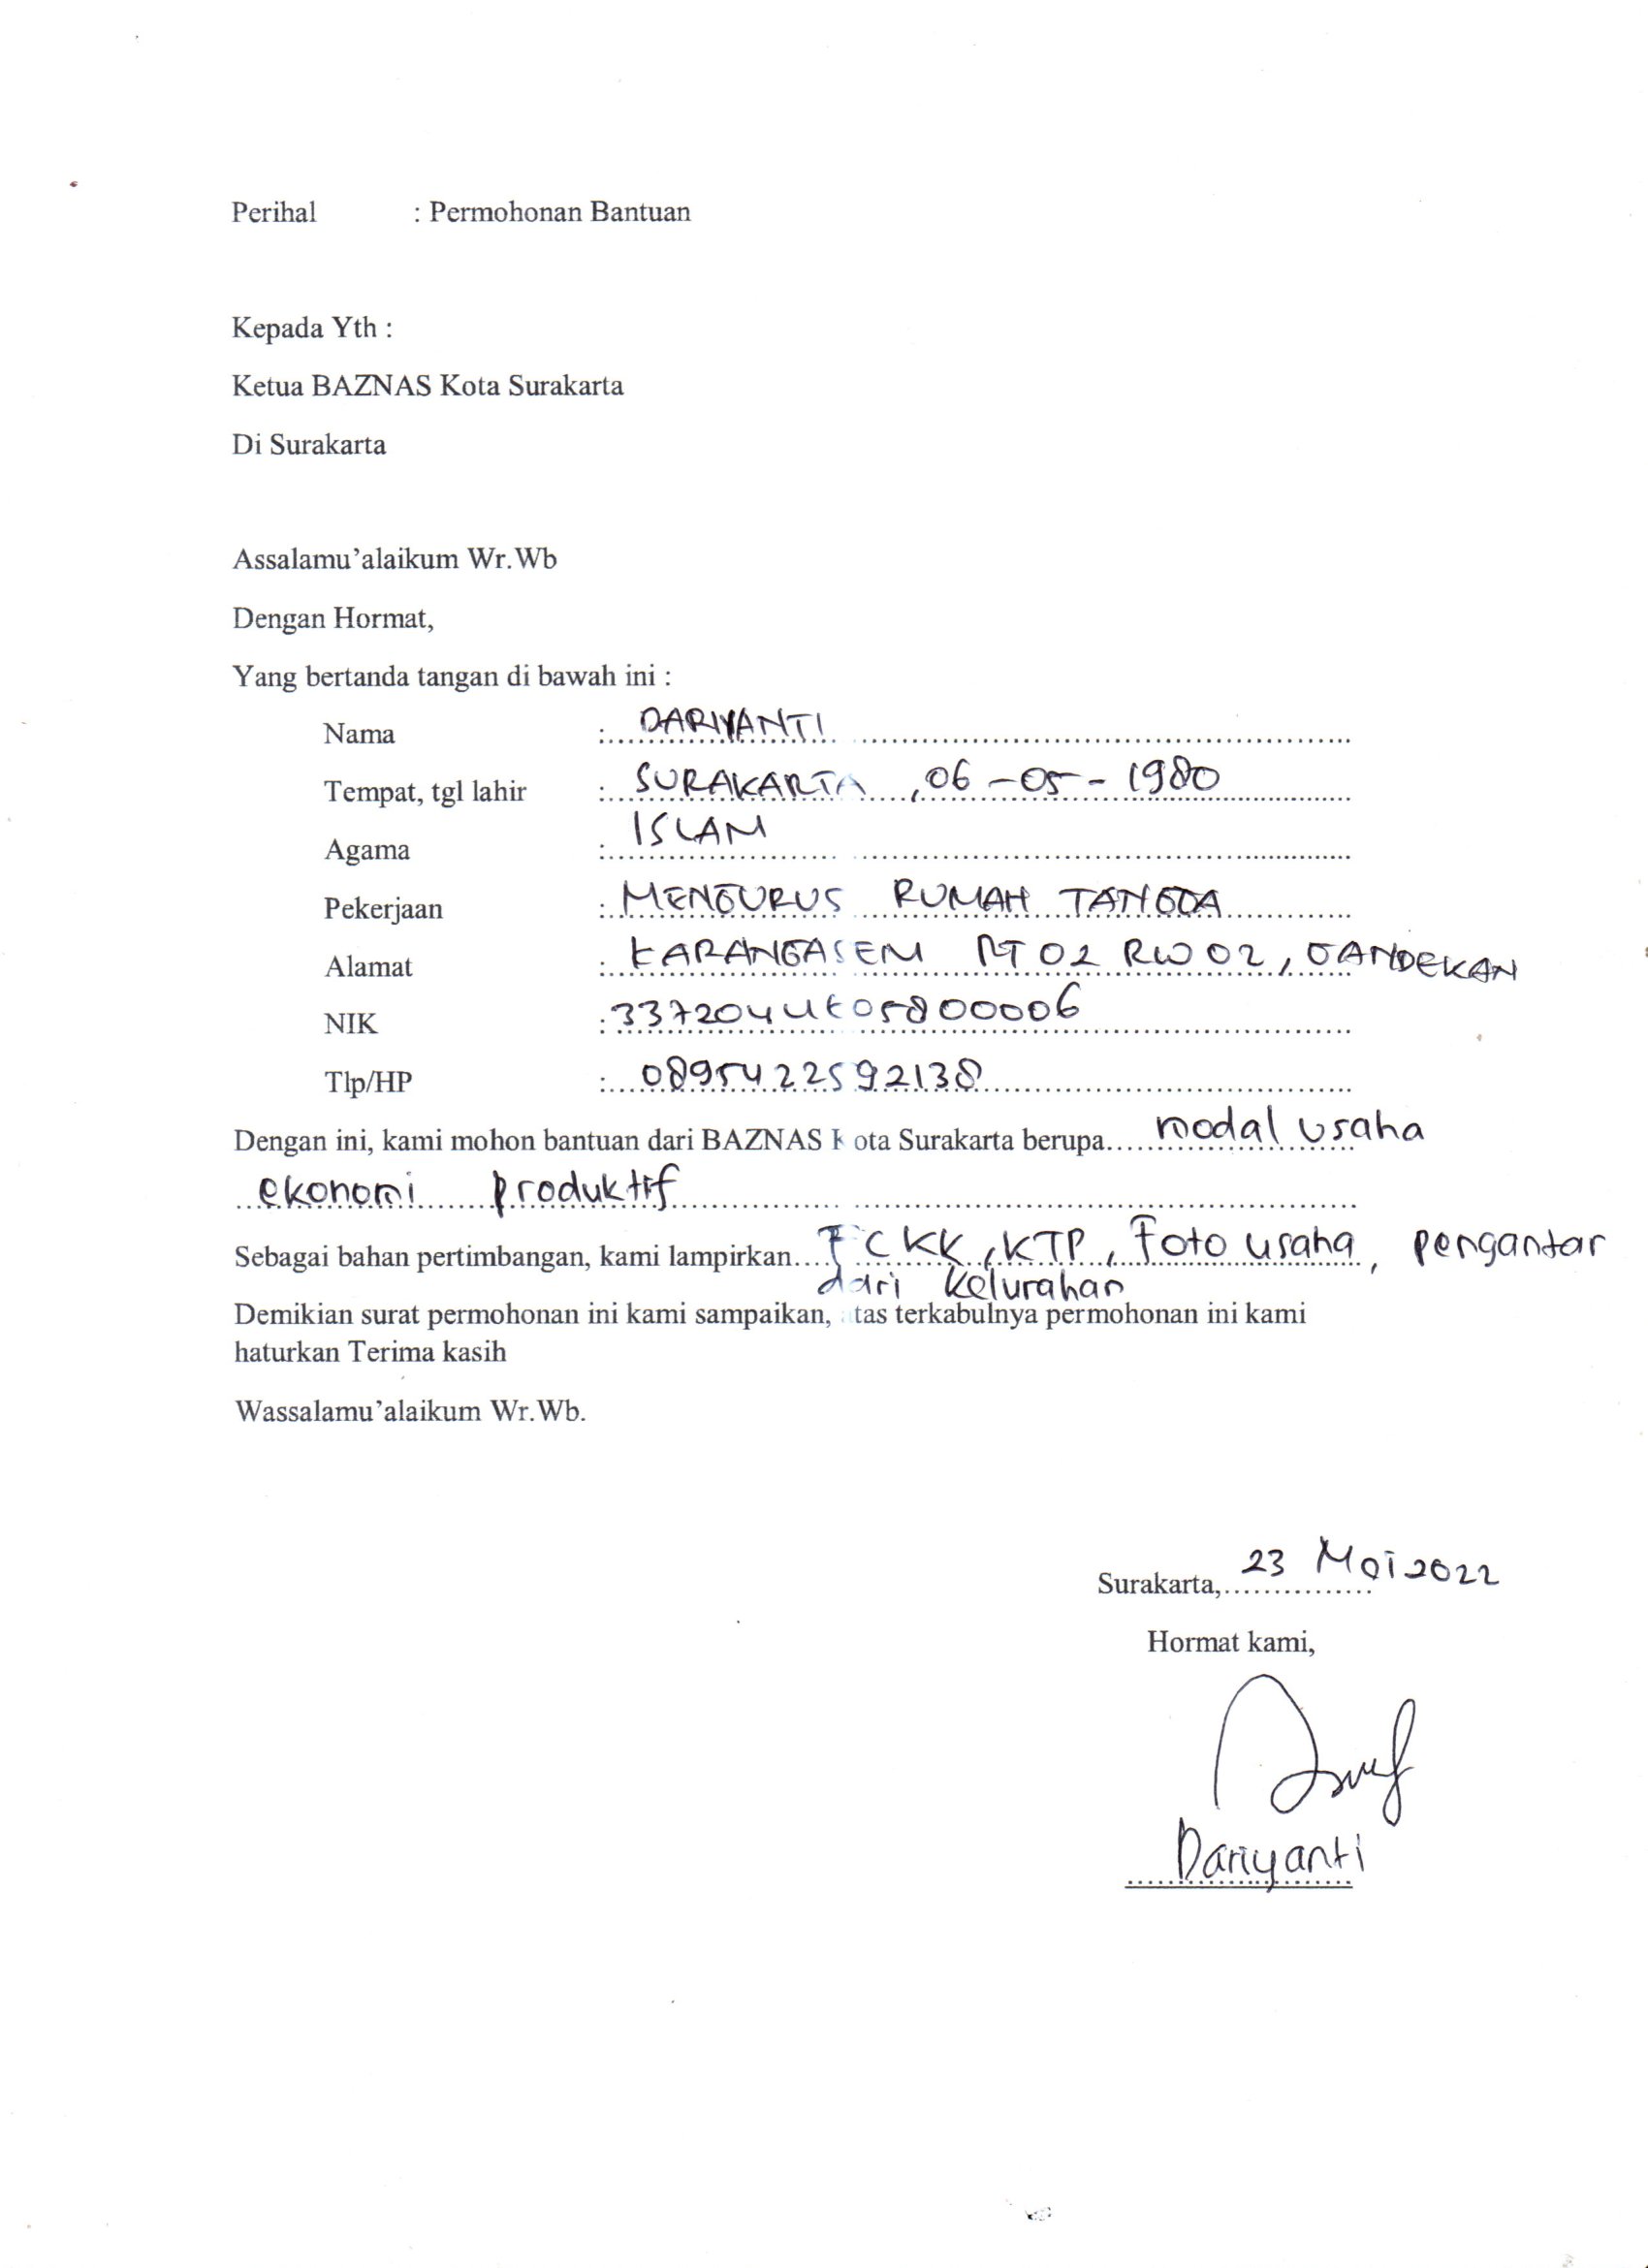 Perihal : Permohonan Bantuan
Kepada Yth :
Ketua BAZNAS Kota Surakarta
Di Surakarta
Assalamu'alaikum Wr.Wb
Dengan Hormat,
Yang bertanda tangan di bawah ini :
Nama : DARIYANTI
Tempat, tgl lahir : SURAKARTA, 06-05-1980
Agama : ISLAM
Pekerjaan : MENGURUS RUMAH TANGGA
Alamat : KARANGASEM RT 02 RW 02, GANDEKAN
NIK :
Tlp/HP : 0895422592138
Dengan ini, kami mohon bantuan dari BAZNAS Kota Surakarta berupa modal usaha
ekonomi produktif
Sebagai bahan pertimbangan, kami lampirkan FC KK, KTP, Foto usaha, pengantar
dari kelurahan
Demikian surat permohonan ini kami sampaikan, atas terkabulnya permohonan ini kami
haturkan Terima kasih
Wassalamu'alaikum Wr.Wb.
Surakarta, 23 Mei 2022
Hormat kami,
Dariyanti